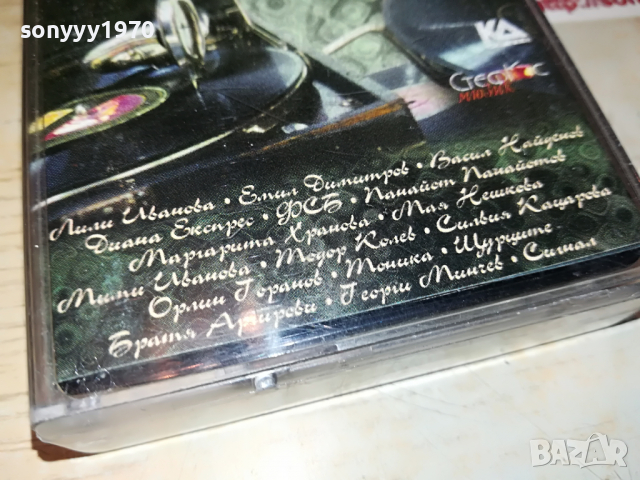 sonyyy1970
КА
Стефкос
МЮЗИК
Лили Иванова • Емил Димитров • Васил Найденов
Диана Експрес • ФСБ • Панайот Панайотов
Маргарита Хранова • Мая Нешкова
Мими Иванова • Тодор Колев • Силвия Кацарова
Орлин Горанов • Тоника • Щурците •
Братя Аргирови • Георги Минчев • Сигнал
BAZAR